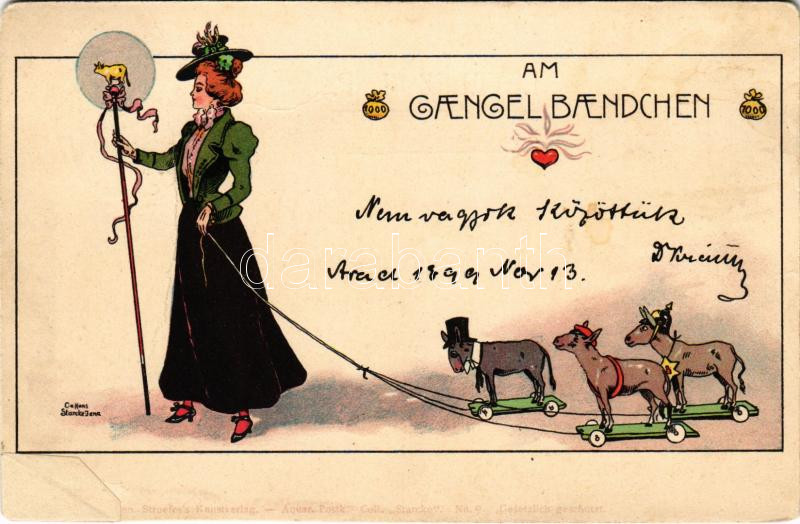 AM
GÆNGELBÆNDCHEN
1000
1000
Nem vagyok közöttük
Arad 1899 Nov 13.
darabanth
Starcke Jena
Stroefer's Kunstverlag. — Aquar. Postk. Coll. „Starcke“. No. 9. Gesetzlich geschützt.